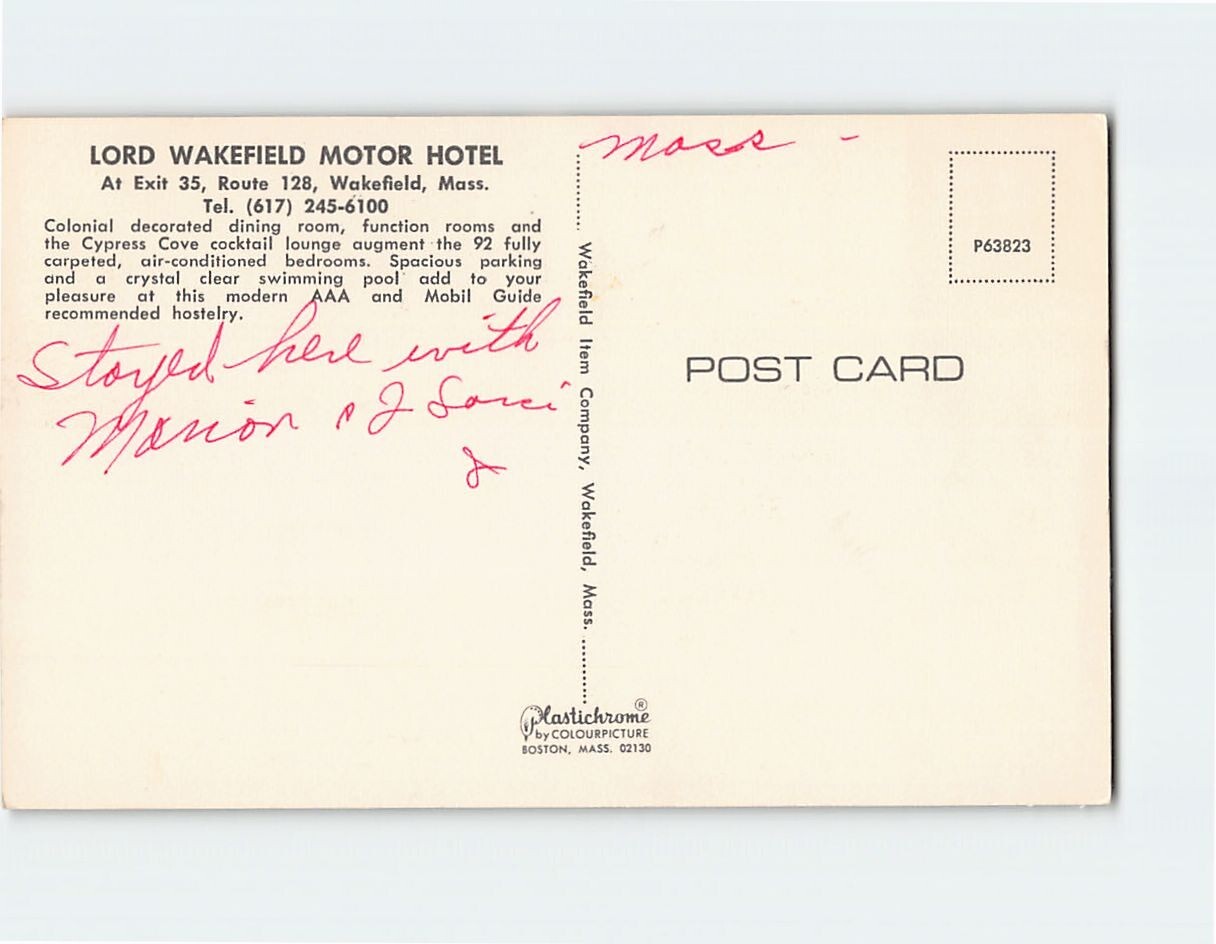 LORD WAKEFIELD MOTOR HOTEL
At Exit 35, Route 128, Wakefield, Mass.
Tel. (617) 245-6100
Colonial decorated dining room, function rooms and
the Cypress Cove cocktail lounge augment the 92 fully
carpeted, air-conditioned bedrooms. Spacious parking
and a crystal clear swimming pool add to your
pleasure at this modern AAA and Mobil Guide
recommended hostelry.
Stayed here with
Marion
Wakefield Item Company, Wakefield, Mass.
Plastichrome®
by COLOURPICTURE
BOSTON, MASS. 02130
Mass -
P63823
POST CARD